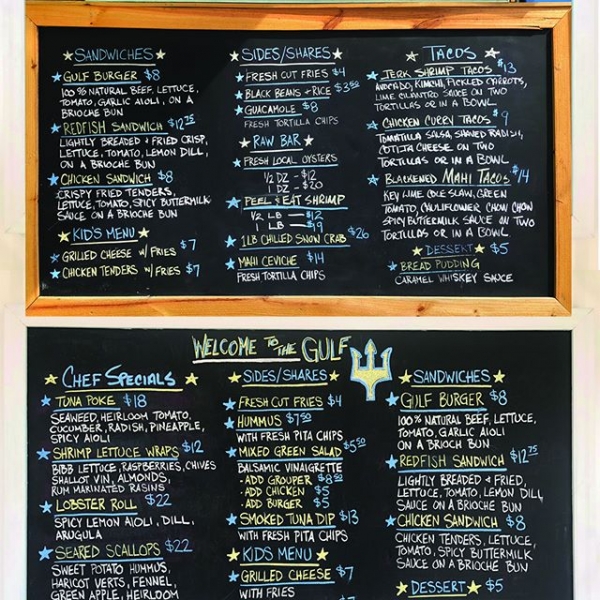 SANDWICHES
GULF BURGER $8
100% NATURAL BEEF, LETTUCE,
TOMATO, GARLIC AIOLI, ON A
BRIOCHE BUN
REDFISH SANDWICH $12.75
LIGHTLY BREADED & FRIED CRISP,
LETTUCE, TOMATO, LEMON DILL,
ON A BRIOCHE BUN
CHICKEN SANDWICH $8
CRISPY FRIED TENDERS,
LETTUCE, TOMATO, SPICY BUTTERMILK
SAUCE ON A BRIOCHE BUN
KID'S MENU
GRILLED CHEESE W/ FRIES $7
CHICKEN TENDERS W/ FRIES $7
SIDES/SHARES
FRESH CUT FRIES $4
BLACK BEANS + RICE $3.50
GUACAMOLE $8
FRESH TORTILLA CHIPS
RAW BAR
FRESH LOCAL OYSTERS
1/2 DZ - $12
1 DZ - $20
PEEL & EAT SHRIMP
1/2 LB - $12
1 LB - $19
1LB CHILLED SNOW CRAB $26
MAHI CEVICHE $14
FRESH TORTILLA CHIPS
TACOS
JERK SHRIMP TACOS $13
AVOCADO, KIMCHI, PICKLED CARROTS,
LIME CILANTRO SAUCE ON TWO
TORTILLAS OR IN A BOWL
CHICKEN CURRY TACOS $9
TOMATILLA SALSA, SHAVED RADISH,
COTIJTA CHEESE ON TWO
TORTILLAS OR IN A BOWL
BLACKENED MAHI TACOS $14
KEY LIME COLE SLAW, GREEN
TOMATO, CAULIFLOWER CHOW CHOW
SPICY BUTTERMILK SAUCE ON TWO
TORTILLAS OR IN A BOWL
DESSERT $5
BREAD PUDDING
CARAMEL WHISKEY SAUCE
WELCOME TO THE GULF
CHEF SPECIALS
TUNA POKE $18
SEAWEED, HEIRLOOM TOMATO,
CUCUMBER, RADISH, PINEAPPLE,
SPICY AIOLI
SHRIMP LETTUCE WRAPS $12
BIBB LETTUCE, RASPBERRIES, CHIVES
SHALLOT VIN, ALMONDS,
RUM MARINATED RASINS
LOBSTER ROLL $22
SPICY LEMON AIOLI, DILL,
ARUGULA
SEARED SCALLOPS $22
SWEET POTATO HUMMUS,
HARICOT VERTS, FENNEL,
GREEN APPLE, HEIRLOOM
SIDES/SHARES
FRESH CUT FRIES $4
HUMMUS $7.50
WITH FRESH PITA CHIPS
MIXED GREEN SALAD $5.50
BALSAMIC VINAIGRETTE
- ADD GROUPER $8.50
- ADD CHICKEN $5
- ADD BURGER $5
SMOKED TUNA DIP $13
WITH FRESH PITA CHIPS
KIDS MENU
GRILLED CHEESE $7
WITH FRIES
SANDWICHES
GULF BURGER $8
100% NATURAL BEEF, LETTUCE,
TOMATO, GARLIC AIOLI
ON A BRIOCH BUN
REDFISH SANDWICH $12.75
LIGHTLY BREADED & FRIED,
LETTUCE, TOMATO, LEMON DILL
SAUCE ON A BRIOCHE BUN
CHICKEN SANDWICH $8
CHICKEN TENDERS, LETTUCE,
TOMATO, SPICY BUTTERMILK
SAUCE ON A BRIOCHE BUN
DESSERT $5